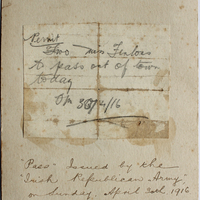 Permit
Two Miss
to pass out of town
today
On 30/4/16
"Pass" Issued by "the
"Irish Republican Army"
on Sunday, April 30th 1916